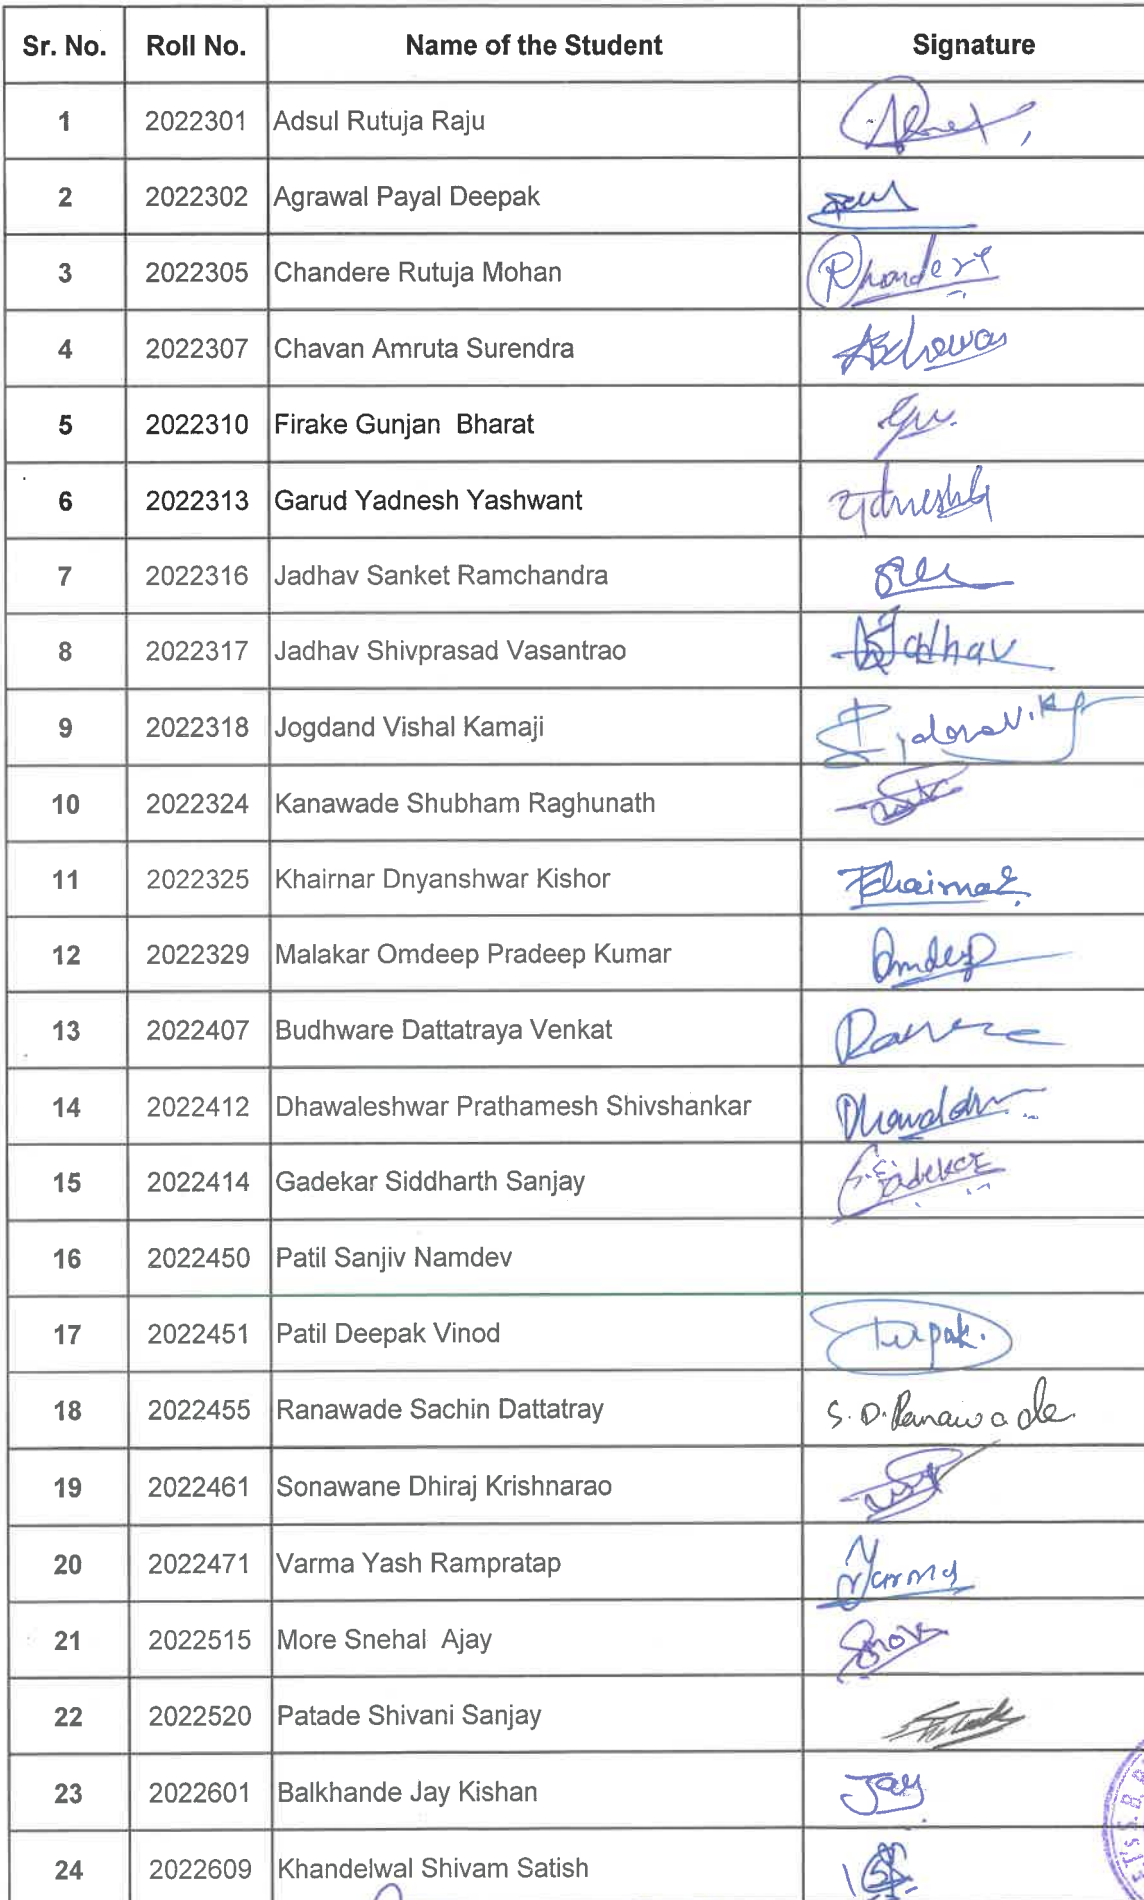 Sr. No. Roll No. Name of the Student Signature
1 2022301 Adsul Rutuja Raju
2 2022302 Agrawal Payal Deepak
3 2022305 Chandere Rutuja Mohan
4 2022307 Chavan Amruta Surendra
5 2022310 Firake Gunjan Bharat
6 2022313 Garud Yadnesh Yashwant
7 2022316 Jadhav Sanket Ramchandra
8 2022317 Jadhav Shivprasad Vasantrao Jadhav
9 2022318 Jogdand Vishal Kamaji
10 2022324 Kanawade Shubham Raghunath
11 2022325 Khairnar Dnyanshwar Kishor Khairnar
12 2022329 Malakar Omdeep Pradeep Kumar Omdeep
13 2022407 Budhware Dattatraya Venkat
14 2022412 Dhawaleshwar Prathamesh Shivshankar
15 2022414 Gadekar Siddharth Sanjay
16 2022450 Patil Sanjiv Namdev
17 2022451 Patil Deepak Vinod
18 2022455 Ranawade Sachin Dattatray S. D. Ranawade
19 2022461 Sonawane Dhiraj Krishnarao
20 2022471 Varma Yash Rampratap
21 2022515 More Snehal Ajay
22 2022520 Patade Shivani Sanjay
23 2022601 Balkhande Jay Kishan Jay
24 2022609 Khandelwal Shivam Satish